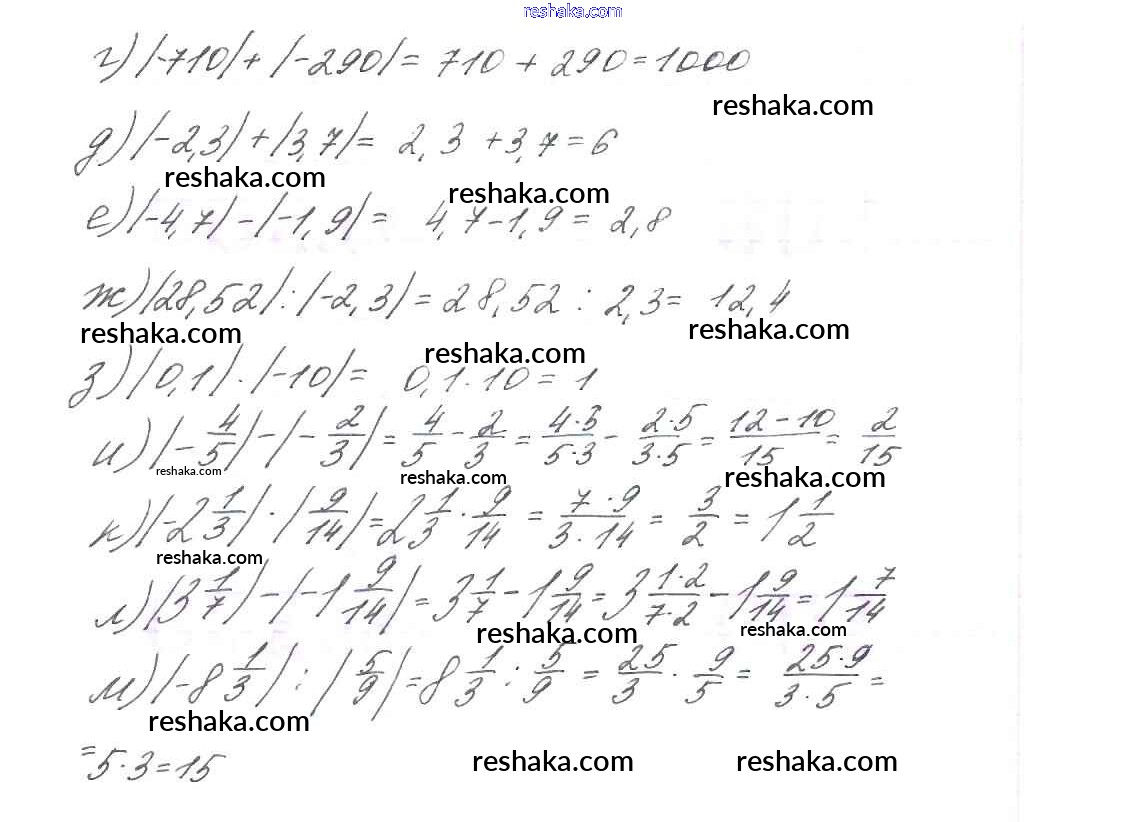 reshaka.com
г) |-710| + |-290| = 710 + 290 = 1000
reshaka.com
д) |-2,3| + |3,7| = 2,3 + 3,7 = 6
reshaka.com reshaka.com
е) |-4,7| - |-1,9| = 4,7 - 1,9 = 2,8
ж) |28,52| : |-2,3| = 28,52 : 2,3 = 12,4
reshaka.com reshaka.com
reshaka.com
з) |0,1| · |-10| = 0,1 · 10 = 1
и) |-4/5| - |-2/3| = 4/5 - 2/3 = 4·3/5·3 - 2·5/3·5 = 12-10/15 = 2/15
reshaka.com reshaka.com reshaka.com
к) |-2 1/3| · |9/14| = 2 1/3 · 9/14 = 7·9/3·14 = 3/2 = 1 1/2
reshaka.com
л) |3 1/7| - |-1 9/14| = 3 1/7 - 1 9/14 = 3 1·2/7·2 - 1 9/14 = 1 7/14
reshaka.com reshaka.com
м) |-8 1/3| : |5/9| = 8 1/3 : 5/9 = 25/3 · 9/5 = 25·9/3·5 =
reshaka.com
= 5·3 = 15
reshaka.com reshaka.com